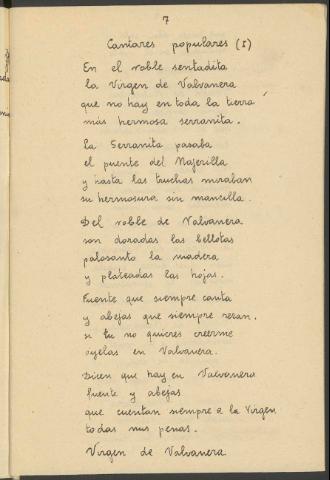 7
Cantares populares (I)
En el roble sentadita
la Virgen de Valvanera
que no hay en toda la tierra
más hermosa serranita.
La Serranita pasaba
el puente del Najerilla
y hasta las truchas miraban
su hermosura sin mancilla.
Del roble de Valvanera
son doradas las bellotas
palosanto la madera
y plateadas las hojas.
Fuente que siempre canta
y abejas que siempre rezan.
si tu no quieres creerme
oyelas en Valvanera.
Dicen que hay en Valvanera
fuente y abejas
que cuentan siempre a la Virgen
todas mis penas.
Virgen de Valvanera